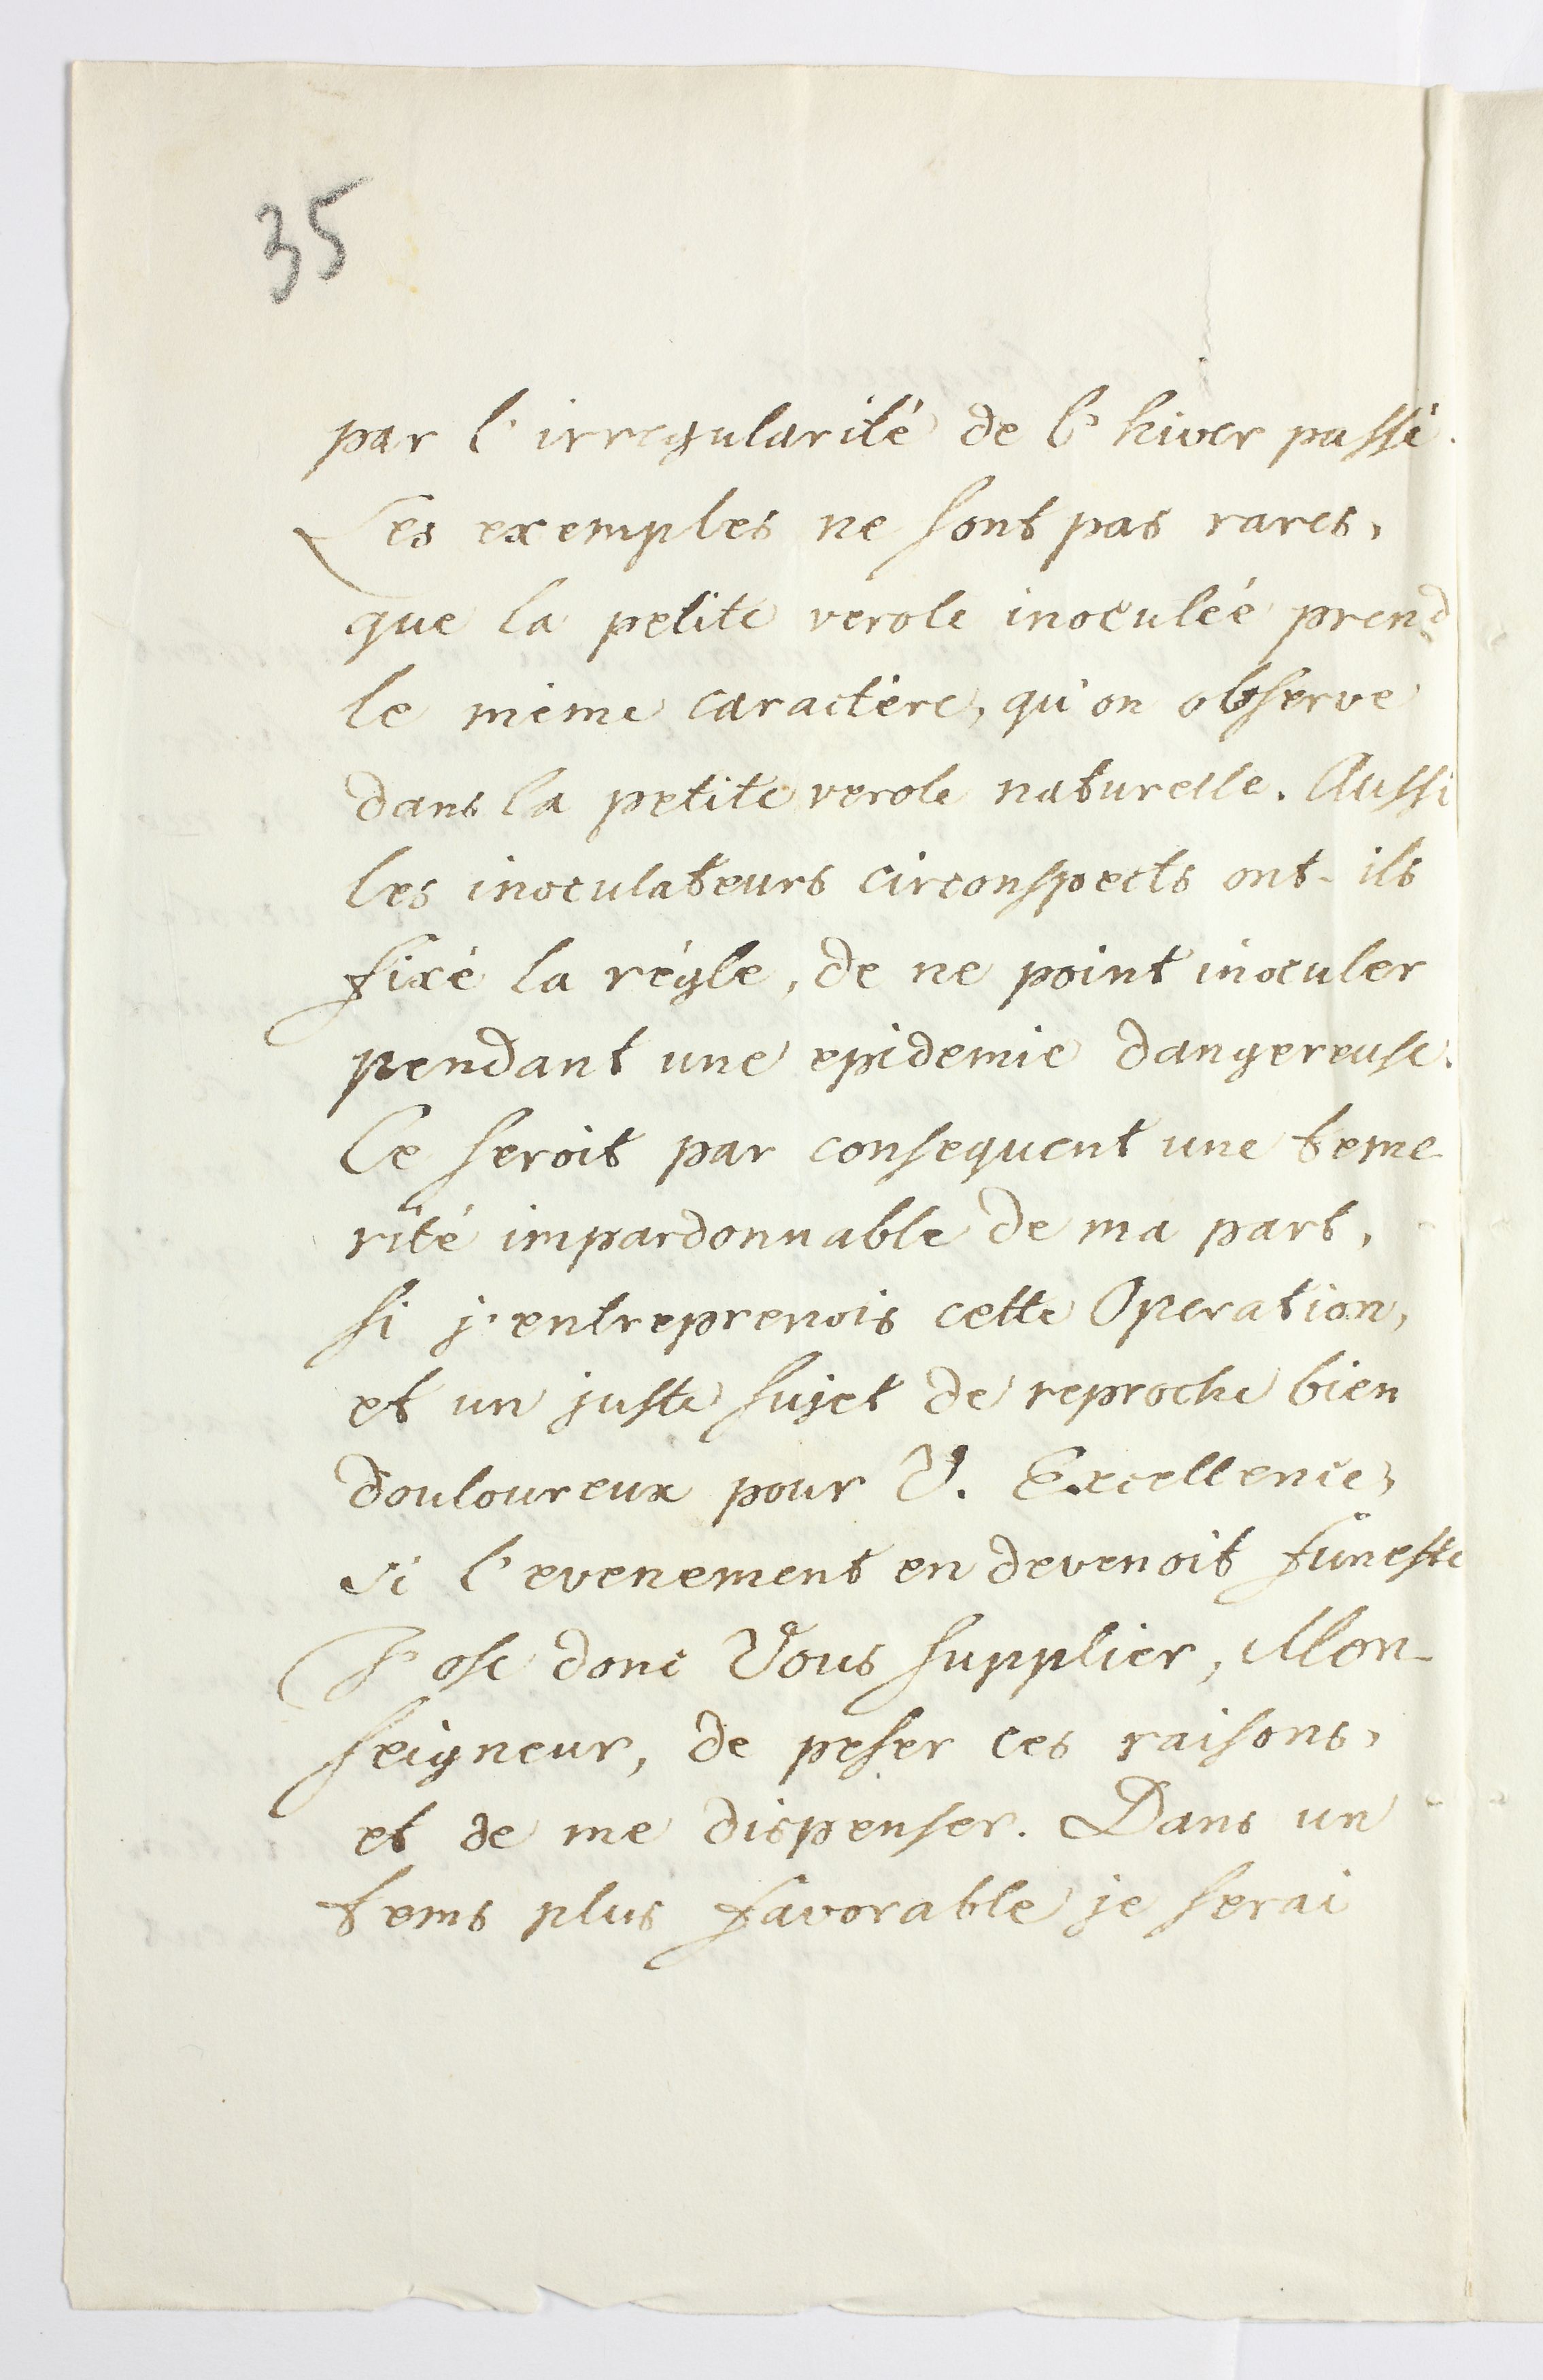 35
par l'irregularité de l'hiver passé.
Les exemples ne sont pas rares,
que la petite verole inoculéé prend
le méme caractére, qu'on observe
dans la petite verole naturelle. Aussi
les inoculateurs circonspects ont-ils
fixé la régle, de ne point inoculer
pendant une epidemie dangereuse.
Ce seroit par consequent une teme-
rité impardonnable de ma part,
si j'entreprenois cette Operation,
et un juste sujet de reproche bien
douloureux pour V. Excellence,
si l'evenement en devenoit funeste
J'ose donc Vous supplier, Mon-
seigneur, de peser ces raisons,
et de me dispenser. Dans un
tems plus favorable je serai